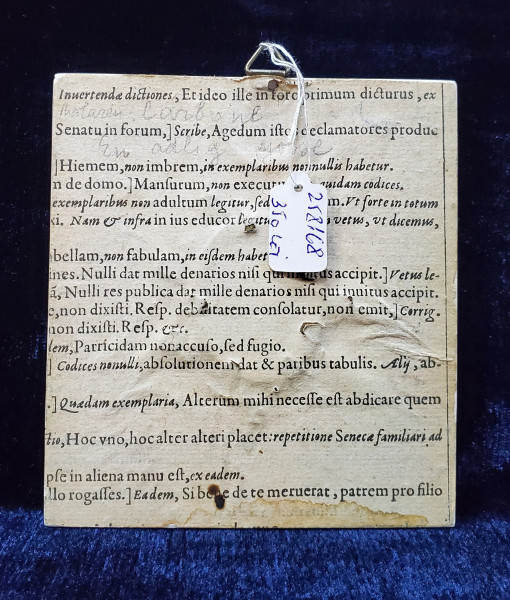 Inuertendæ dictiones, Et ideo ille in foro primum dicturus, ex
Carbone
Senatu in forum,] Scribe, Agedum istos declamatores produc
En
]Hiemem, non imbrem, in exemplaribus nonnullis habetur.
n de domo.] Mansurum, non quidam codices.
exemplaribus non adultum legitur, sed Vt forte in totum
Nam & infra in ius educor vetus, vt dicemus,
bellam, non fabulam, in eisdem
ines. Nulli dat mille denarios nisi qui inuitus accipit.] Vetus le-
Nulli res publica dat mille denarios nisi qui inuitus accipit.
e, non dixisti. Resp. debilitatem consolatur, non emit,] Corrig.
non dixisti. Resp. &c.
dem, Patricidam non accuso, sed fugio.
] Codices nonulli, absolutionem dat & paribus tabulis. Alij, ab-
.] Quædam exemplaria, Alterum mihi necesse est abdicare quem
tio, Hoc vno, hoc alter alteri placet: repetitione Senecæ familiari ad
pse in aliena manu est, ex eadem.
llo rogasses.] Eadem, Si bene de te meruerat, patrem pro filio
258168
350 Lei